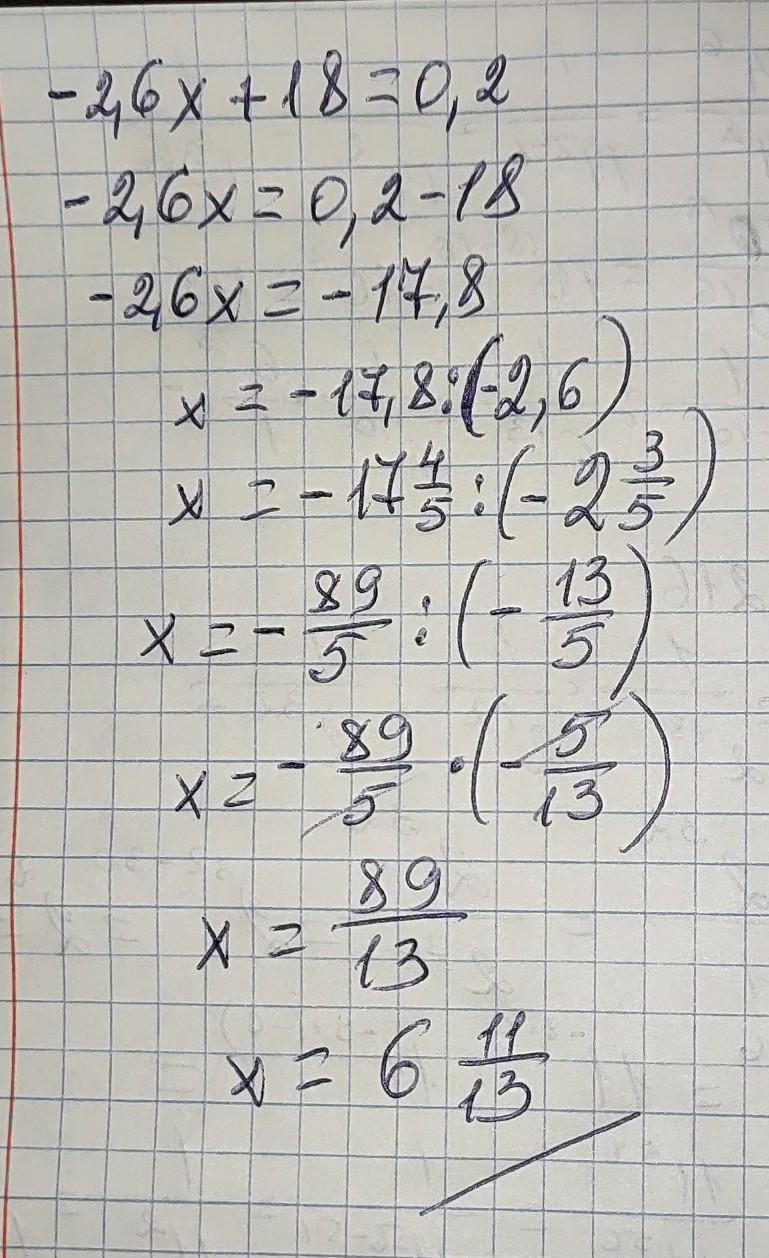 -2,6x+18=0,2
-2,6x=0,2-18
-2,6x=-17,8
x=-17,8:(-2,6)
x=-17 4/5:(-2 3/5)
x=-89/5:(-13/5)
x=-89/5·(-5/13)
x=89/13
x=6 11/13